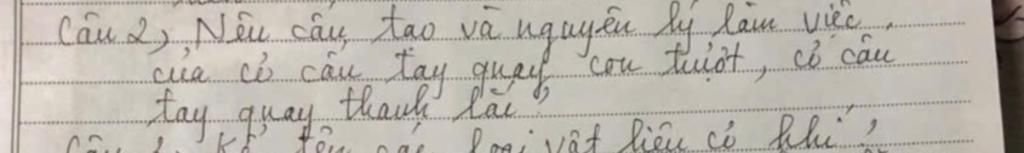 Câu 2, Nêu cấu tạo và nguyên lý làm việc
của cơ cấu tay quay con trượt, cơ cấu
tay quay thanh lắc?
Câu 3. Kể tên các loại vật liệu cơ khí?